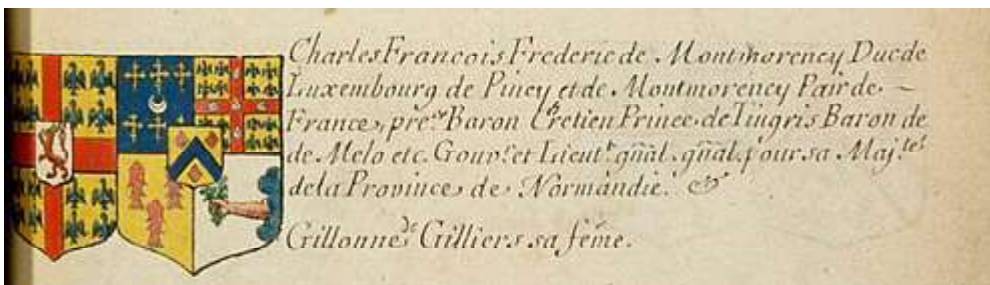 Charles François Frederic de Montmorency Duc de
Luxembourg de Piney et de Montmorency Pair de
France, pre.er Baron Cretien Prince de Tingris Baron de
de Melo etc. Gouv.r et Lieut.t gñal. gñal. pour sa Maj.te
de la Province de Normandie.
Gillonne de Gilliers sa fème.